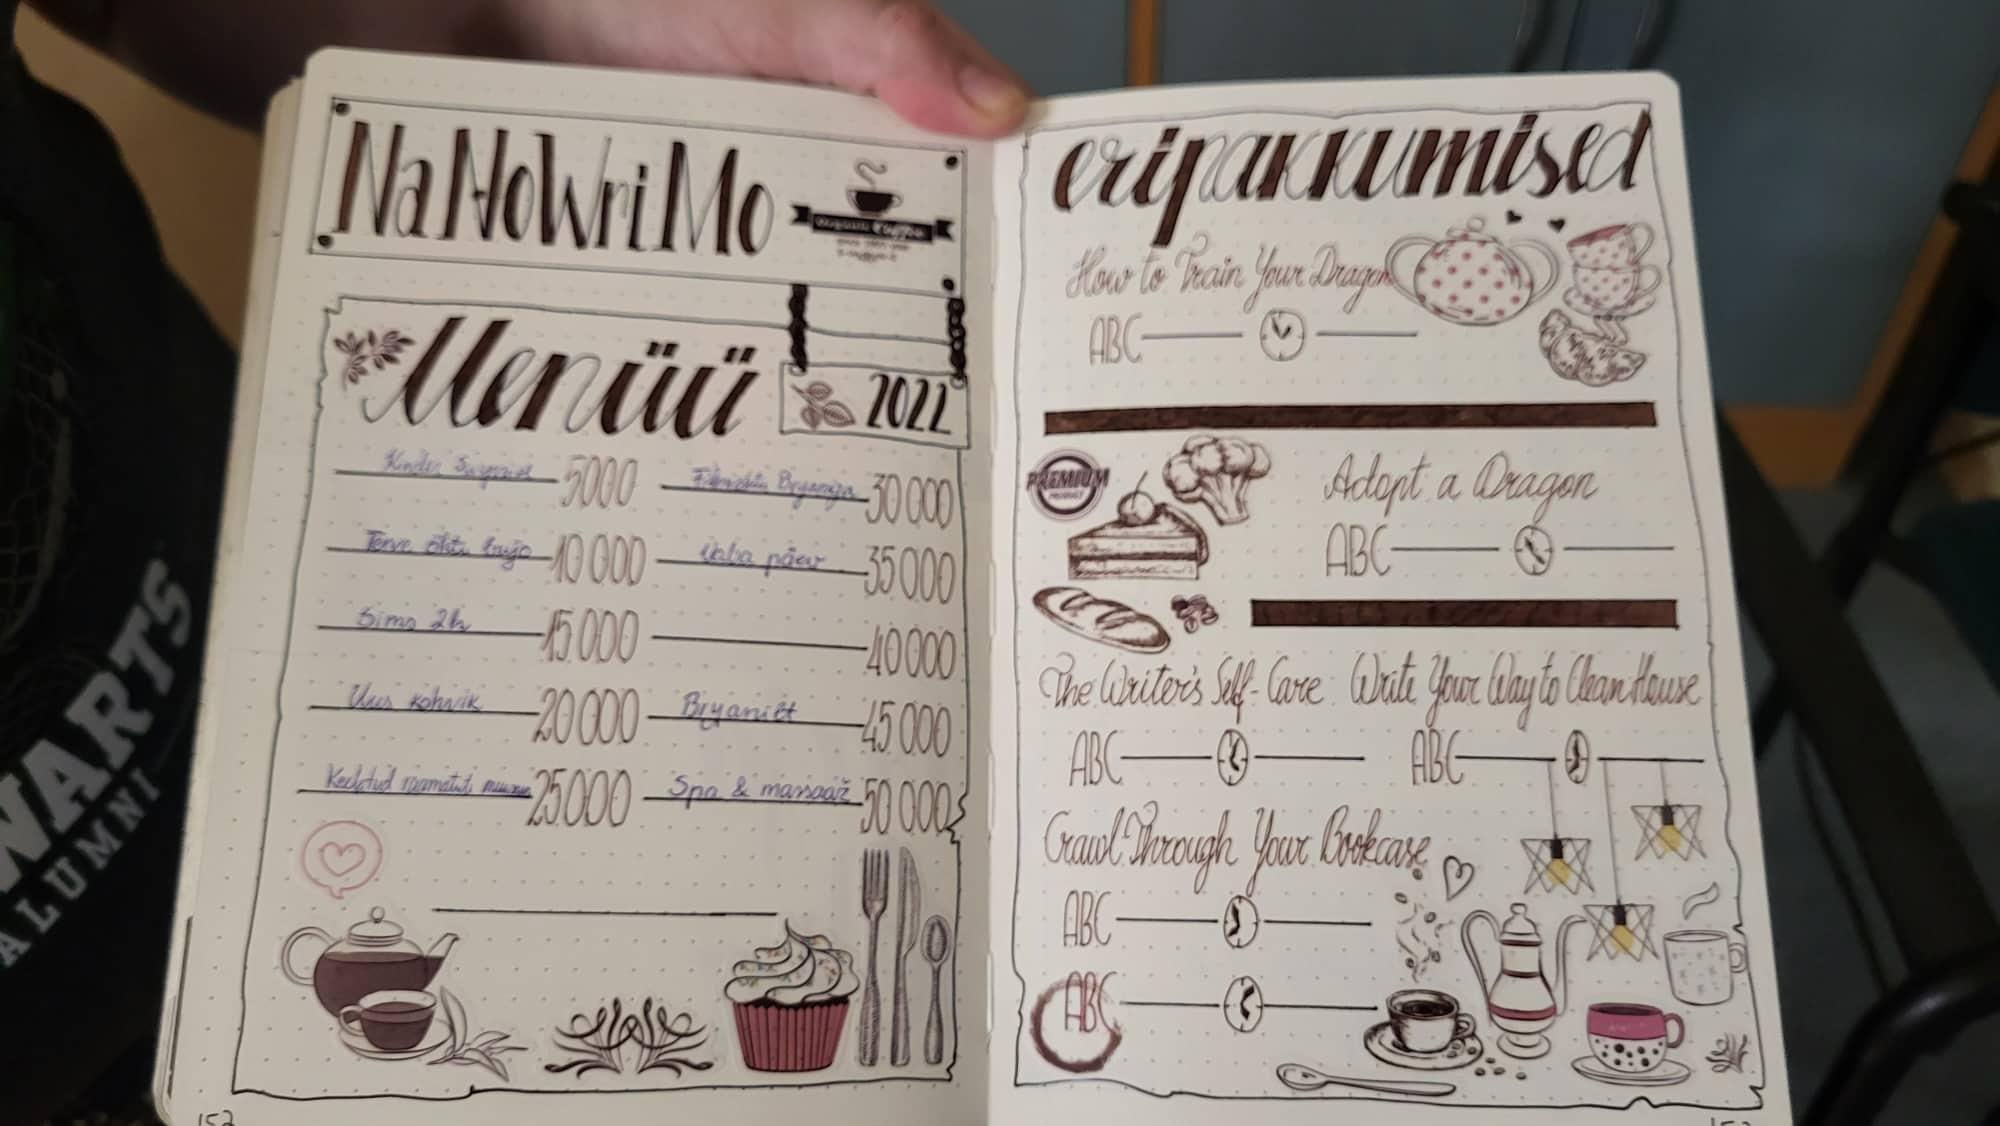 NaNoWriMo
Menüü
2022
5000
30 000
Terve õhtu
10 000
Vaba päev
35 000
Sims 2h
15 000
40 000
Uus kohvik
20 000
45 000
raamatut
25 000
Spa & massaaž
50 000
152
eripakkumised
How to Train Your Dragon
ABC
PREMIUM
PRODUCT
Adopt a Dragon
ABC
The Writer's Self-Care
Write Your Way to Clean House
ABC
ABC
Crawl Through Your Bookcase
ABC
ABC
WARTS
ALUMNI